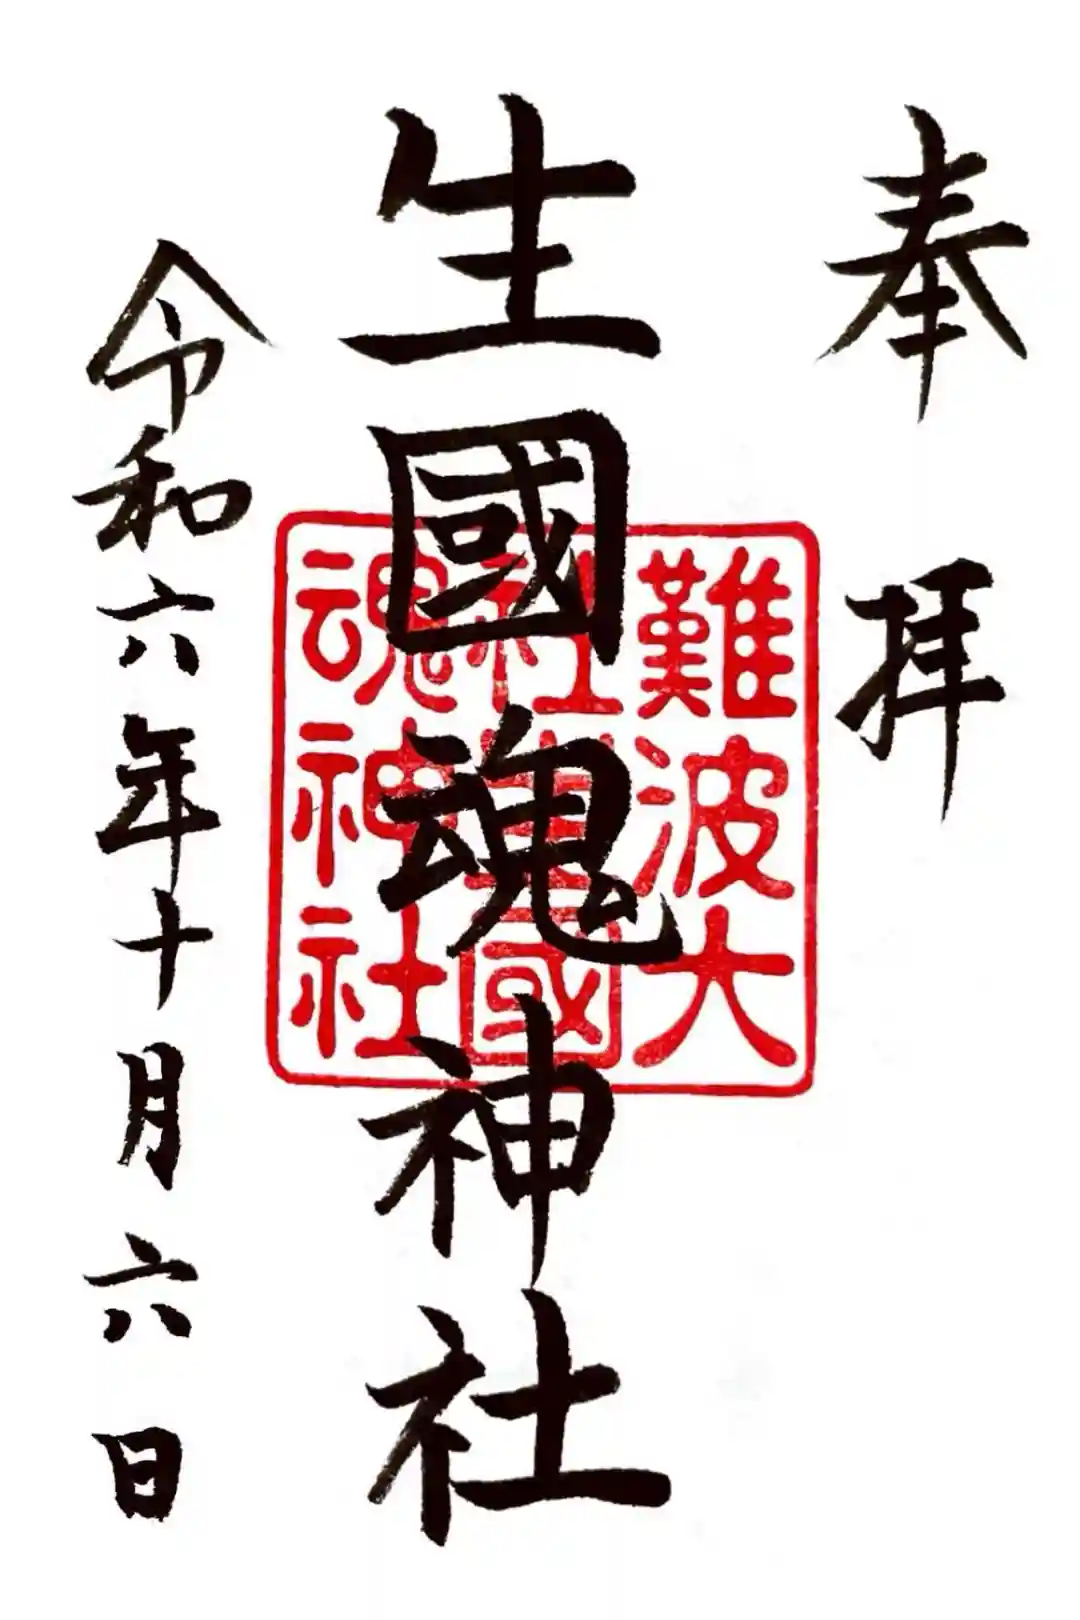 奉拝
生國魂神社
令和六年十月六日
難波大
社生國
魂神社